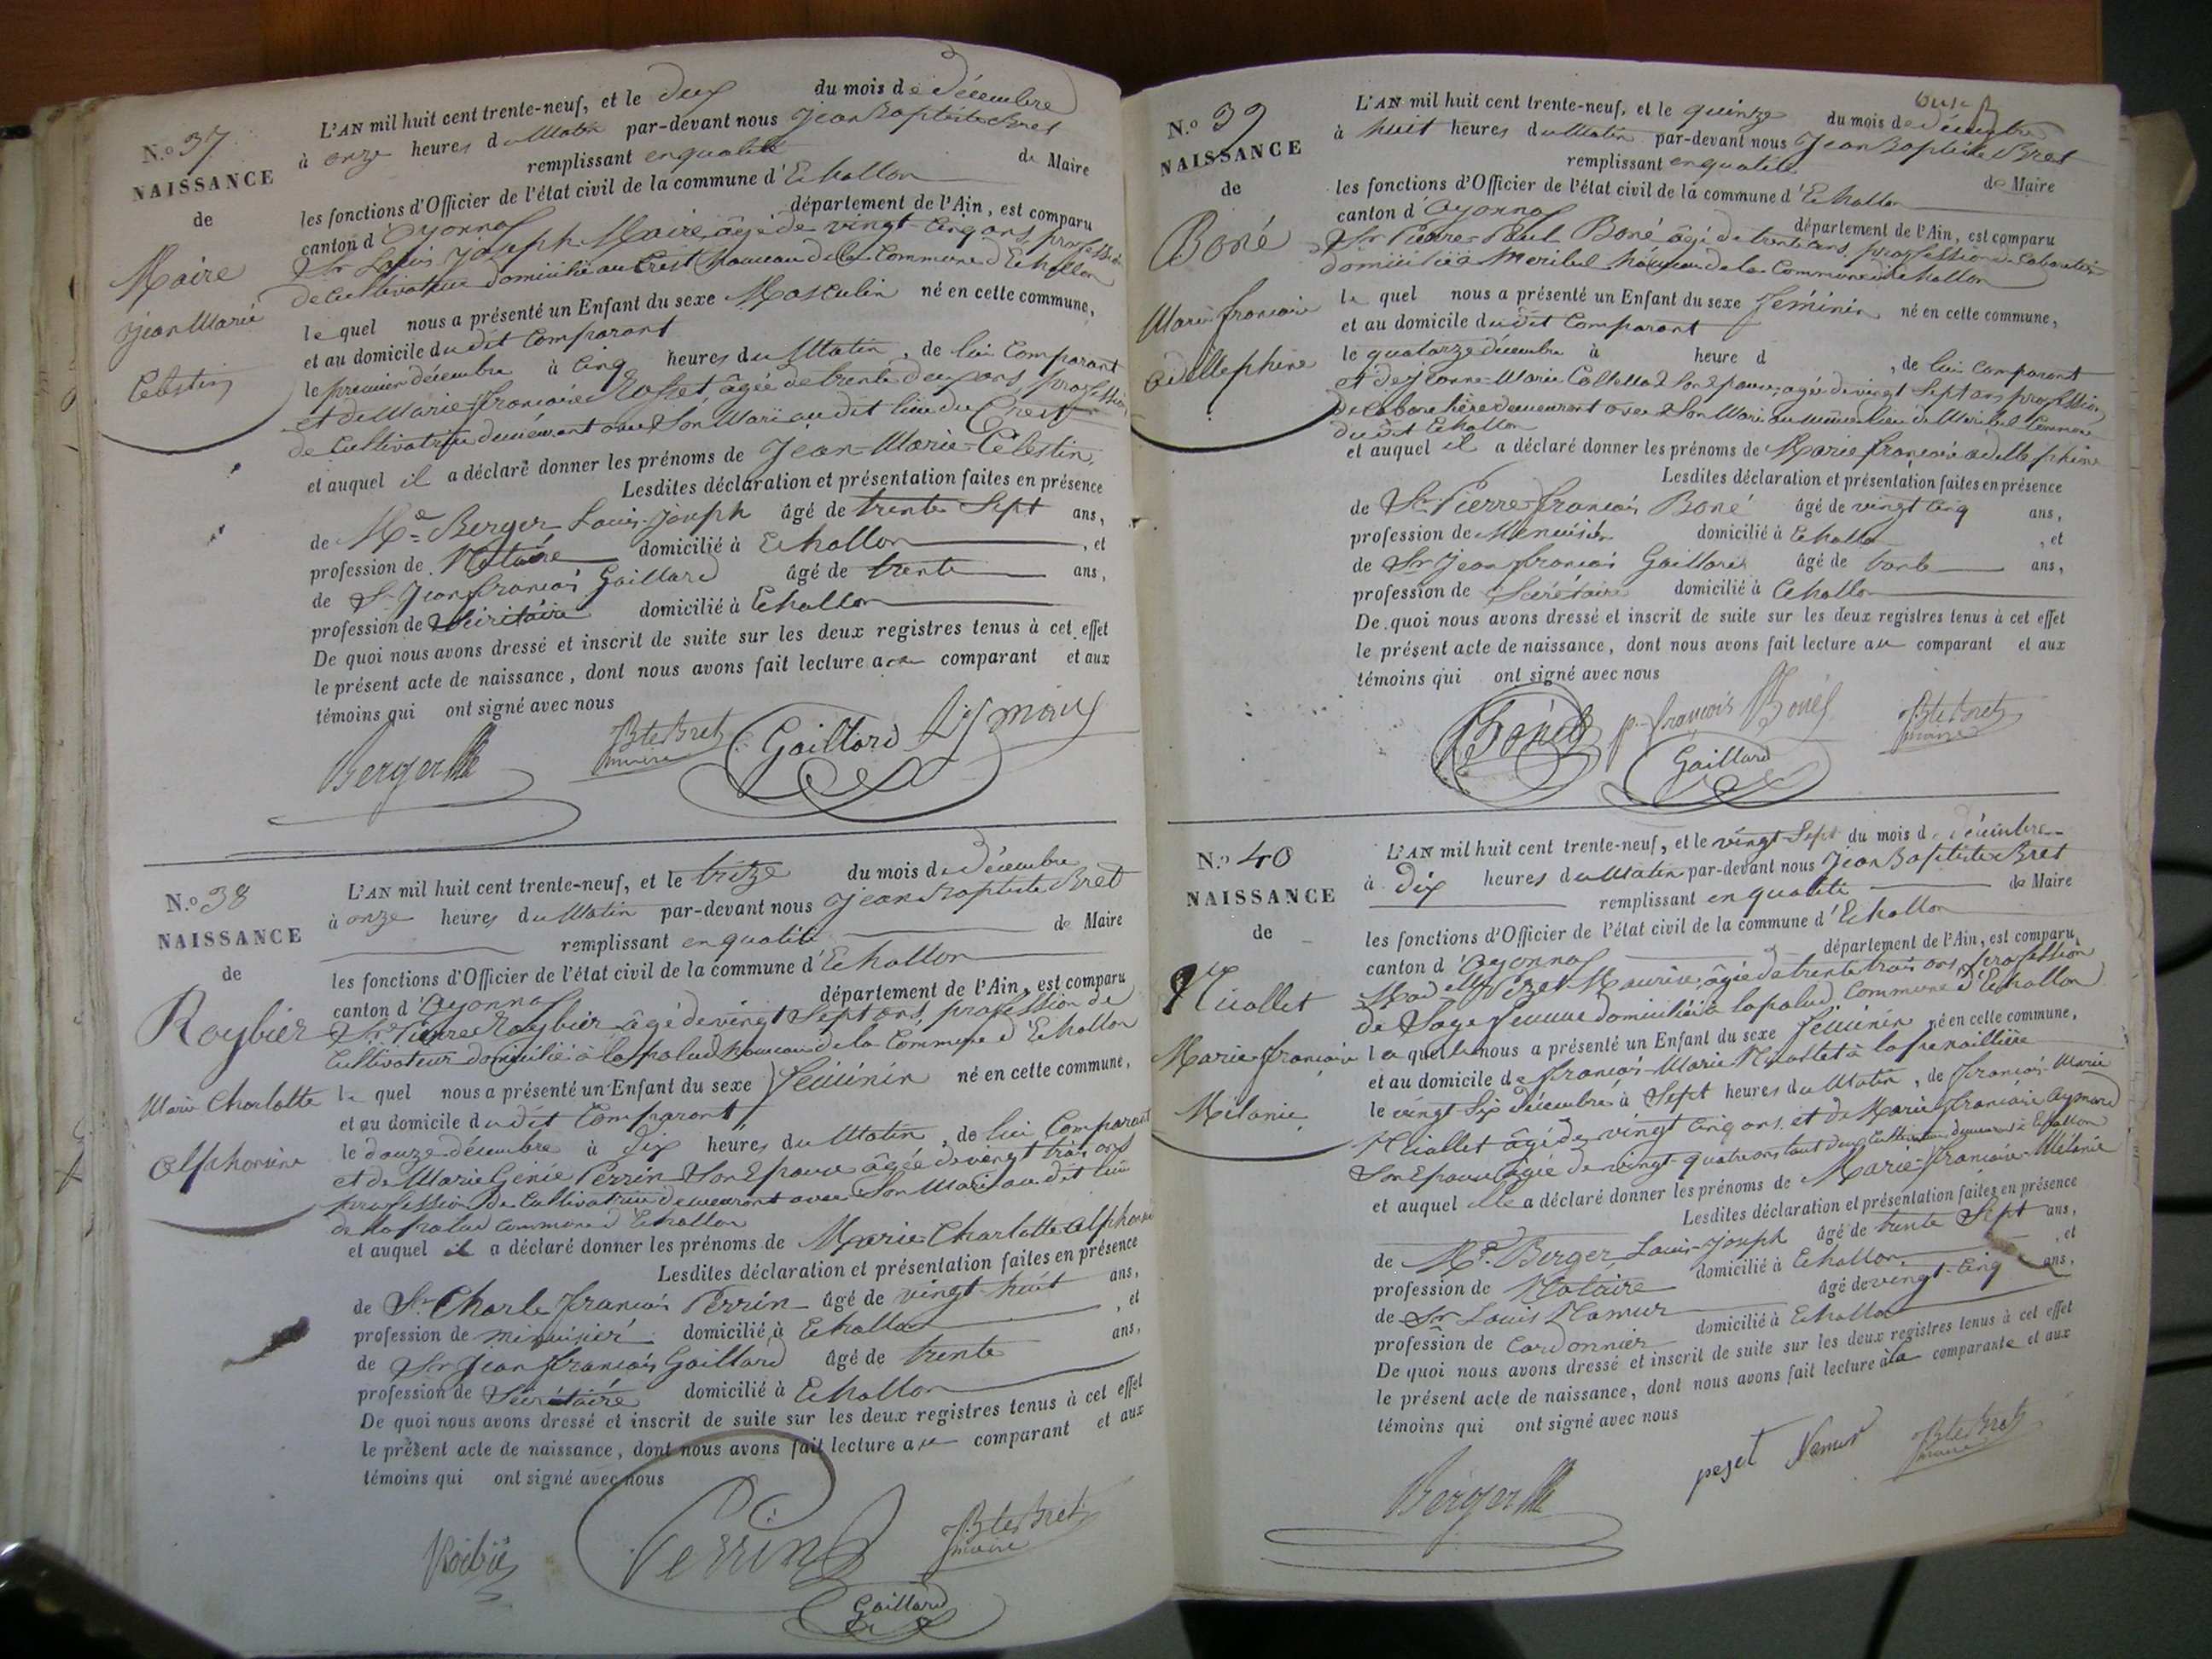 N.o 37
NAISSANCE
de
Maire
Jean Marie
Celestin
L'AN mil huit cent trente-neuf, et le deux du mois de décembre
à onze heures du Matin par-devant nous Jean Baptiste Bret
remplissant en qualité de Maire
les fonctions d'Officier de l'état civil de la commune d'Echallon
canton d'Oyonnax département de l'Ain, est comparu
Sr Louis Joseph Maire, âgé de vingt-cinq ans, profession
de Cultivateur domicilié au Crest hameau de la Commune d'Echallon
le quel nous a présenté un Enfant du sexe Masculin né en cette commune,
et au domicile du dit Comparant
le premier décembre à Cinq heures du Matin, de lui Comparant
et de Marie-françoise Rosset, âgée de trente deux ans, profession
de Cultivatrice demeurant avec Son Mari au dit lieu du Crest
et auquel il a déclaré donner les prénoms de Jean-Marie-Célestin,
Lesdites déclaration et présentation faites en présence
de Me Berger Louis-Joseph âgé de trente Sept ans,
profession de Notaire domicilié à Echallon, et
de Sr Jean françois Gaillard âgé de trente ans,
profession de Sécrétaire domicilié à Echallon
De quoi nous avons dressé et inscrit de suite sur les deux registres tenus à cet effet
le présent acte de naissance, dont nous avons fait lecture au comparant et aux
témoins qui ont signé avec nous
Berger
Bte Bret
maire
Gaillard
N.o 38
NAISSANCE
de
Raybier
Marie Charlotte
Alphonsine
L'AN mil huit cent trente-neuf, et le treize du mois de décembre
à onze heures du Matin par-devant nous Jean Baptiste Bret
remplissant en qualité de Maire
les fonctions d'Officier de l'état civil de la commune d'Echallon
canton d'Oyonnax département de l'Ain, est comparu
Sr Pierre Raybier âgé de vingt Sept ans, profession de
Cultivateur domicilié à lapalud hameau de la Commune d'Echallon
le quel nous a présenté un Enfant du sexe féminin né en cette commune,
et au domicile du dit Comparant,
le douze décembre à dix heures du Matin, de lui Comparant
et de Marie Génie Perrin Son Epouse âgée de vingt trois ans
profession de Cultivatrice demeurant avec Son Mari au dit lieu
de lapalud commune d'Echallon
et auquel il a déclaré donner les prénoms de Marie Charlotte Alphonsine
Lesdites déclaration et présentation faites en présence
de Sr Charle françois Perrin âgé de vingt-huit ans,
profession de menuisier domicilié à Echallon, et
de Sr Jean françois Gaillard âgé de trente ans,
profession de Sécrétaire domicilié à Echallon
De quoi nous avons dressé et inscrit de suite sur les deux registres tenus à cet effet
le présent acte de naissance, dont nous avons fait lecture au comparant et aux
témoins qui ont signé avec nous
Perrin
Bte Bret
maire
Gaillard
N.o 39
NAISSANCE
de
Boné
Marie françoise
adellephine
L'AN mil huit cent trente-neuf, et le quinze du mois de décembre
à huit heures du Matin par-devant nous Jean Baptiste Bret
remplissant en qualité de Maire
les fonctions d'Officier de l'état civil de la commune d'Echallon
canton d'Oyonnax département de l'Ain, est comparu
Sr Pierre-Paul Boné âgé de trente ans, profession de Laboureur
domicilié à Meribel hameau de la Commune d'Echallon
le quel nous a présenté un Enfant du sexe féminin né en cette commune,
et au domicile du dit Comparant
le quatorze décembre à heure d , de lui Comparant
et de Jeanne-Marie Son Epouse, agée de vingt Sept ans profession
demeurant avec Son Mari au même lieu de Meribel Commune
du dit Echallon
et auquel il a déclaré donner les prénoms de Marie françoise adellephine
Lesdites déclaration et présentation faites en présence
de Sr Pierre-françois Boné âgé de vingt cinq ans,
profession de Menuisier domicilié à Echallon, et
de Sr Jean françois Gaillard âgé de trente ans,
profession de Sécrétaire domicilié à Echallon
De quoi nous avons dressé et inscrit de suite sur les deux registres tenus à cet effet
le présent acte de naissance, dont nous avons fait lecture au comparant et aux
témoins qui ont signé avec nous
p. françois
Bte Bret
maire
Gaillard
N.o 40
NAISSANCE
de
Niollet
Marie françoise
Mélanie
L'AN mil huit cent trente-neuf, et le vingt-Sept du mois de décembre
à Dix heures du Matin par-devant nous Jean Baptiste Bret
remplissant en qualité de Maire
les fonctions d'Officier de l'état civil de la commune d'Echallon
canton d'Oyonnax département de l'Ain, est comparu
Maurice, âgée de trente trois ans, profession
de Sage femme domiciliée à lapalud, Commune d'Echallon
la quelle nous a présenté un Enfant du sexe féminin né en cette commune,
et au domicile de françois-Marie Niollet à
le vingt Six décembre à Sept heures du Matin, de françois-Marie
Niollet âgé de vingt cinq ans, et de Marie françoise Aymard
Son Epouse âgée de vingt-quatre ans tout deux Cultivateurs demeurant à Echallon
et auquel elle a déclaré donner les prénoms de Marie-françoise-Mélanie
Lesdites déclaration et présentation faites en présence
de Me Berger Louis-Joseph âgé de trente Sept ans,
profession de Notaire domicilié à Echallon, et
de Sr Louis Namur âgé de vingt-cinq ans,
profession de Cordonnier domicilié à Echallon
De quoi nous avons dressé et inscrit de suite sur les deux registres tenus à cet effet
le présent acte de naissance, dont nous avons fait lecture à la comparante et aux
témoins qui ont signé avec nous
Berger
peset
Namur
Bte Bret
maire